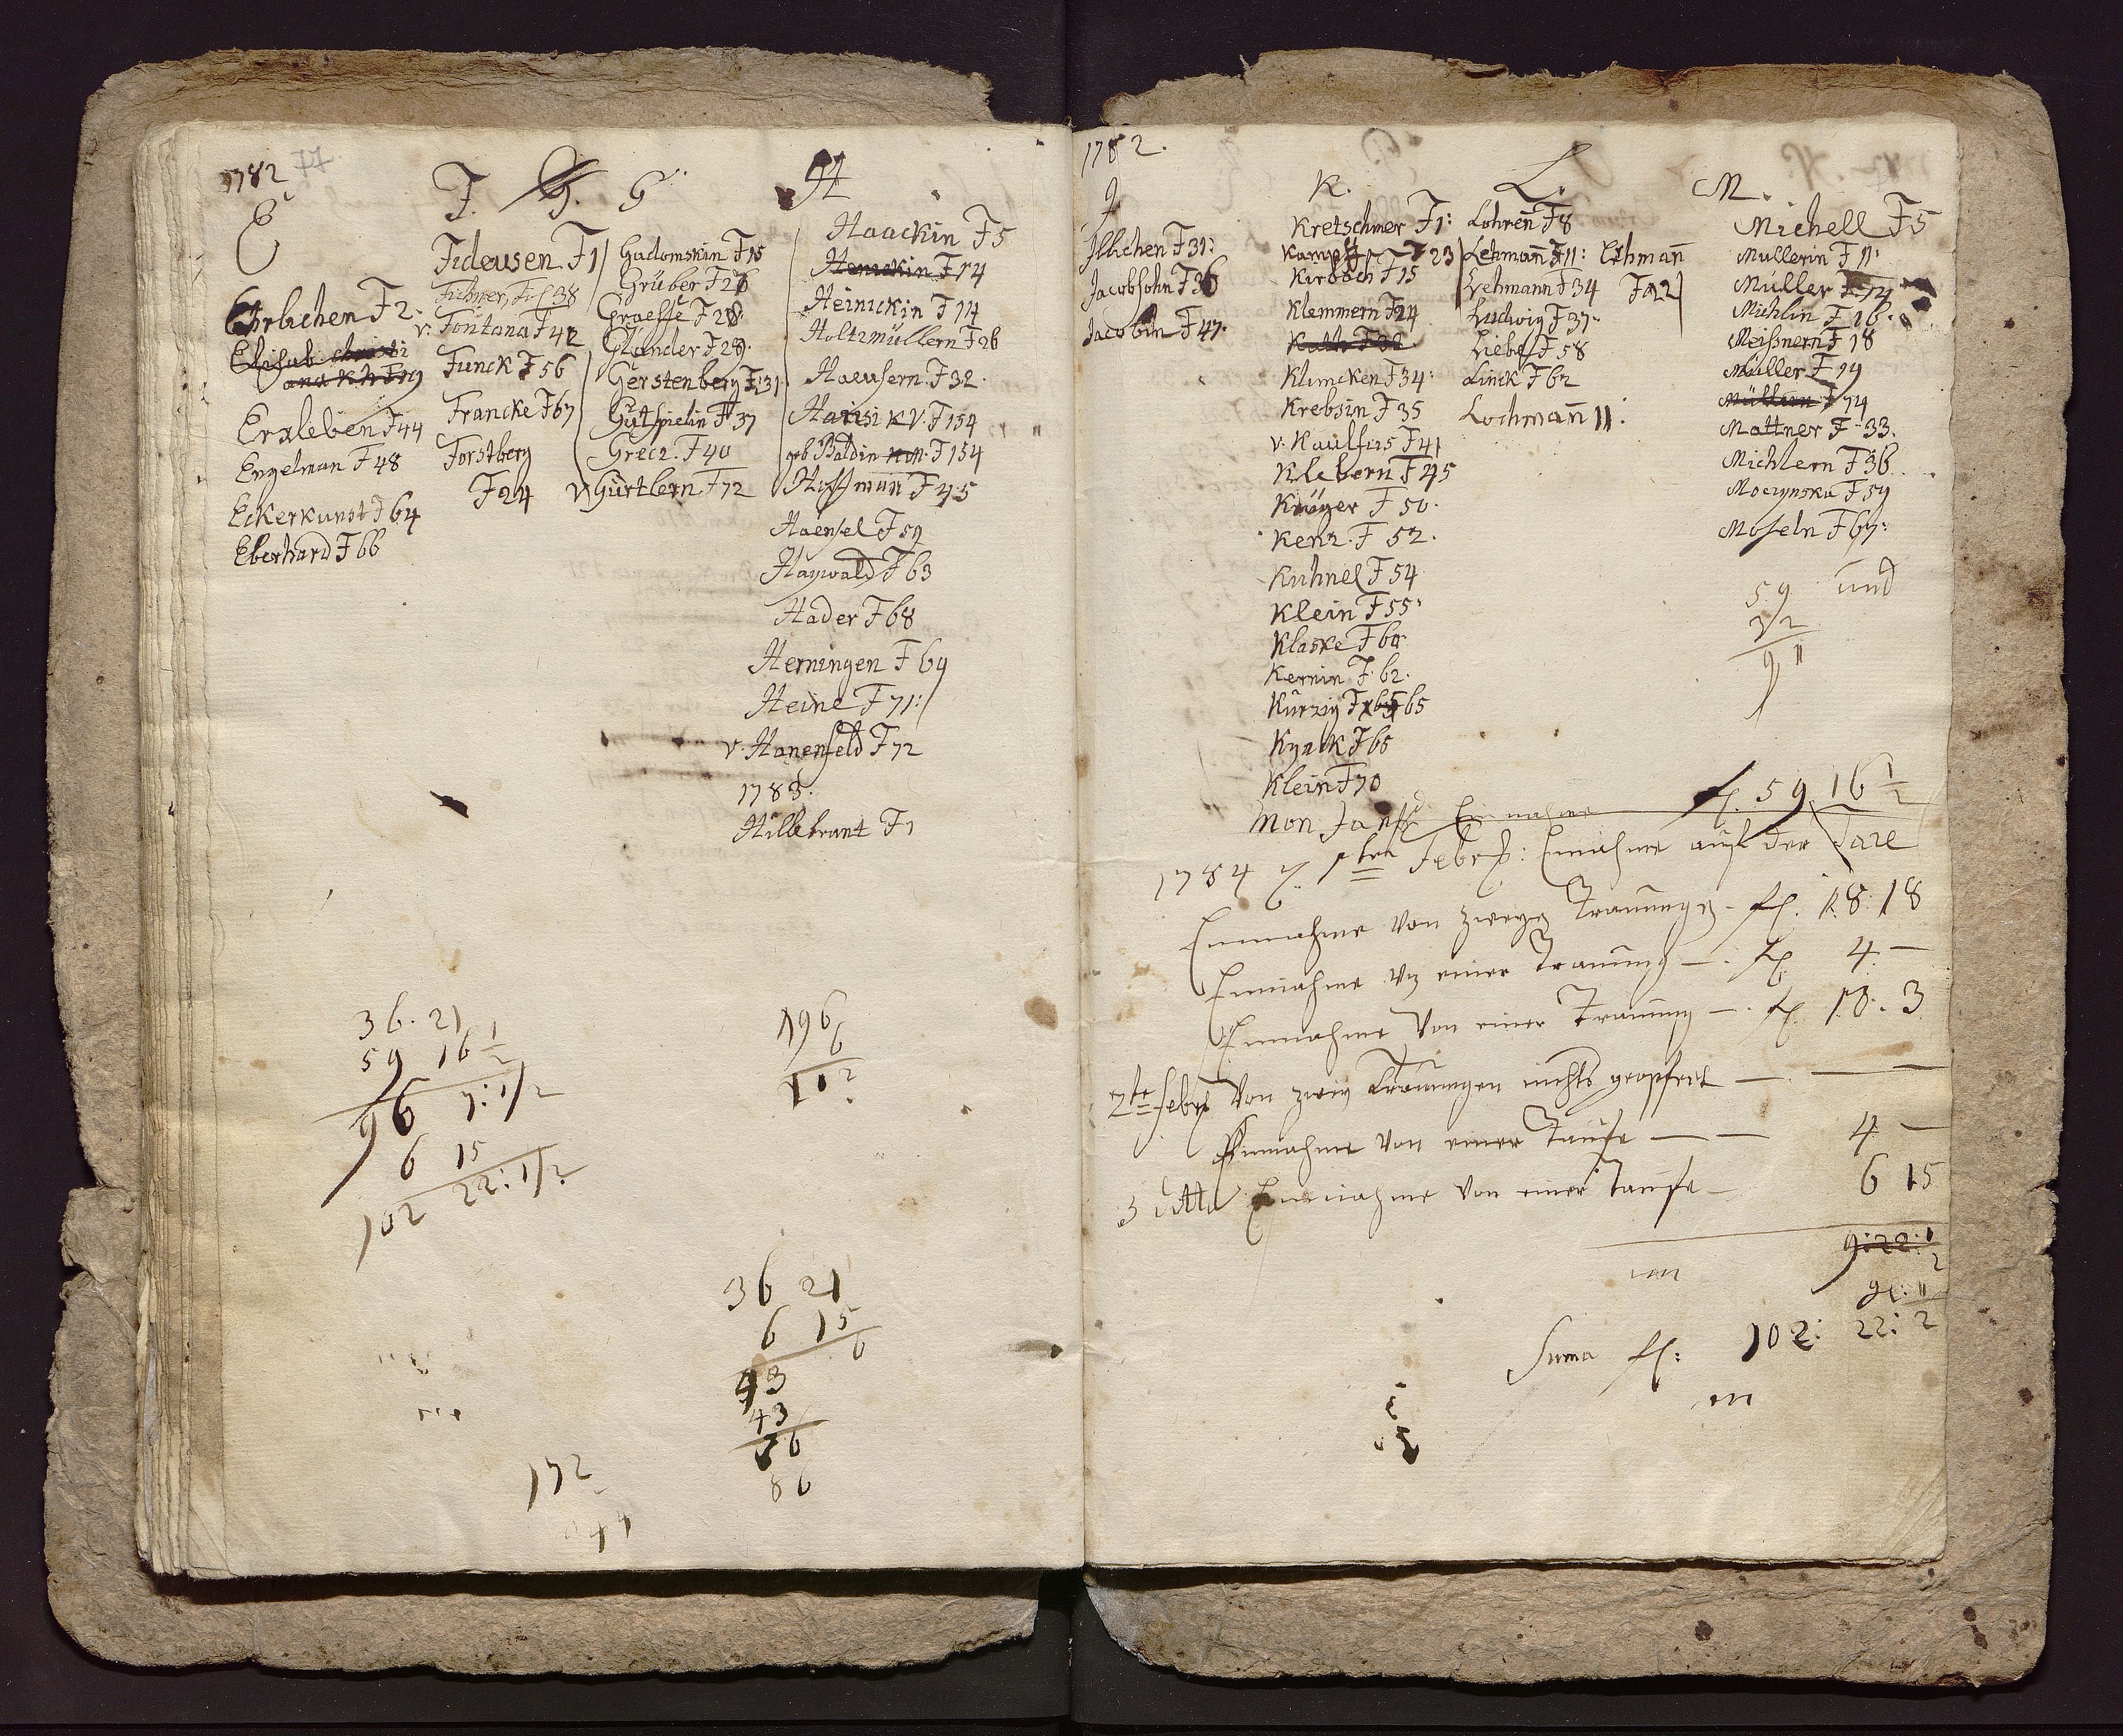 1782 77
E
Ehrlichen F 2.
Elisab christi
Erxleben F 44
Engelman F 48
Eckerkunst F 64
Eberhard F 66
F. G. G
Fideusen F 1
v. Fontana F 42
Funck F 56
Francke F 67
Forstberg
F 24
Gadomskin F 15
Grüber F 26
Graesse F 28
Glander F 29.
Gerstenberg F 31
Gutspielin F 37
Grecz. F 40
v Gürtlern F 72
H
Haackin F 5
Henickin F 14
Heinickin F 14
Holtzmüllern F 26
Haeusern F 32.
F 154
geb Baldin F 154
Hoffman F 45
Haensel F 59
Haywald F 63
Hader F 68
Herningen F 69
Heine F 71:
v. Hanenfeld F 72
1783.
Hillebrant F 1
36. 21
59 16 1/2
96 7: 1/2
6 15
102 22: 1/2
196
6
102
36 21
6 15
6
43
43
86
172
1782.
J
Ilbichen F 31:
Jacobsohn F 36
Jacobin F 47.
K.
Kretschmer F 1:
Kampf F 23
Kirbach F 15
Klemmern F 24
Klimcken F 34:
Krebsin F 35
v. Kaulfus F 41
Klebern F 45
Krüger F 50.
Kenz. F 52.
Kühnel F 54
Klein F 55:
Klaske F 60
Kernin F. 62.
Kürzig F 65
Kynck F 65
Klein F 70
L.
Lohren F 8
Lehmañ F 11: Lehmañ
Lehmann F 34 F 22
Ludwig F 37.
Liebes F 58
Linck F 62
Lochmañ 11:
M.
Michell F 5
Mullerin F 11:
Müller F 14
Michlin F 16.
Meißnern F 18
Müller F 19
Müllern F 74
Mattner F 33.
Michlern F 36
Moczynska F 59
Moseln F 67:
59 und
Mon Einnahme fl. 59 16 1/2
1784 d. 1ten Febr: Einnahme auf der Taxe
Einnahme von zweyen Trauungen - fl. 18: 18
Einnahme von einer Trauung - fl. 4. -
Einnahme von einer Trauung - fl. 10. 3
2te Febr von zwey Trauungen nichts geopfert -
Einnahme von einer Taufe - - 4 -
3 ditto Einnahme von einer Taufe - 6 15
9: 22: 1/2
Suma fl: 102: 22: 2